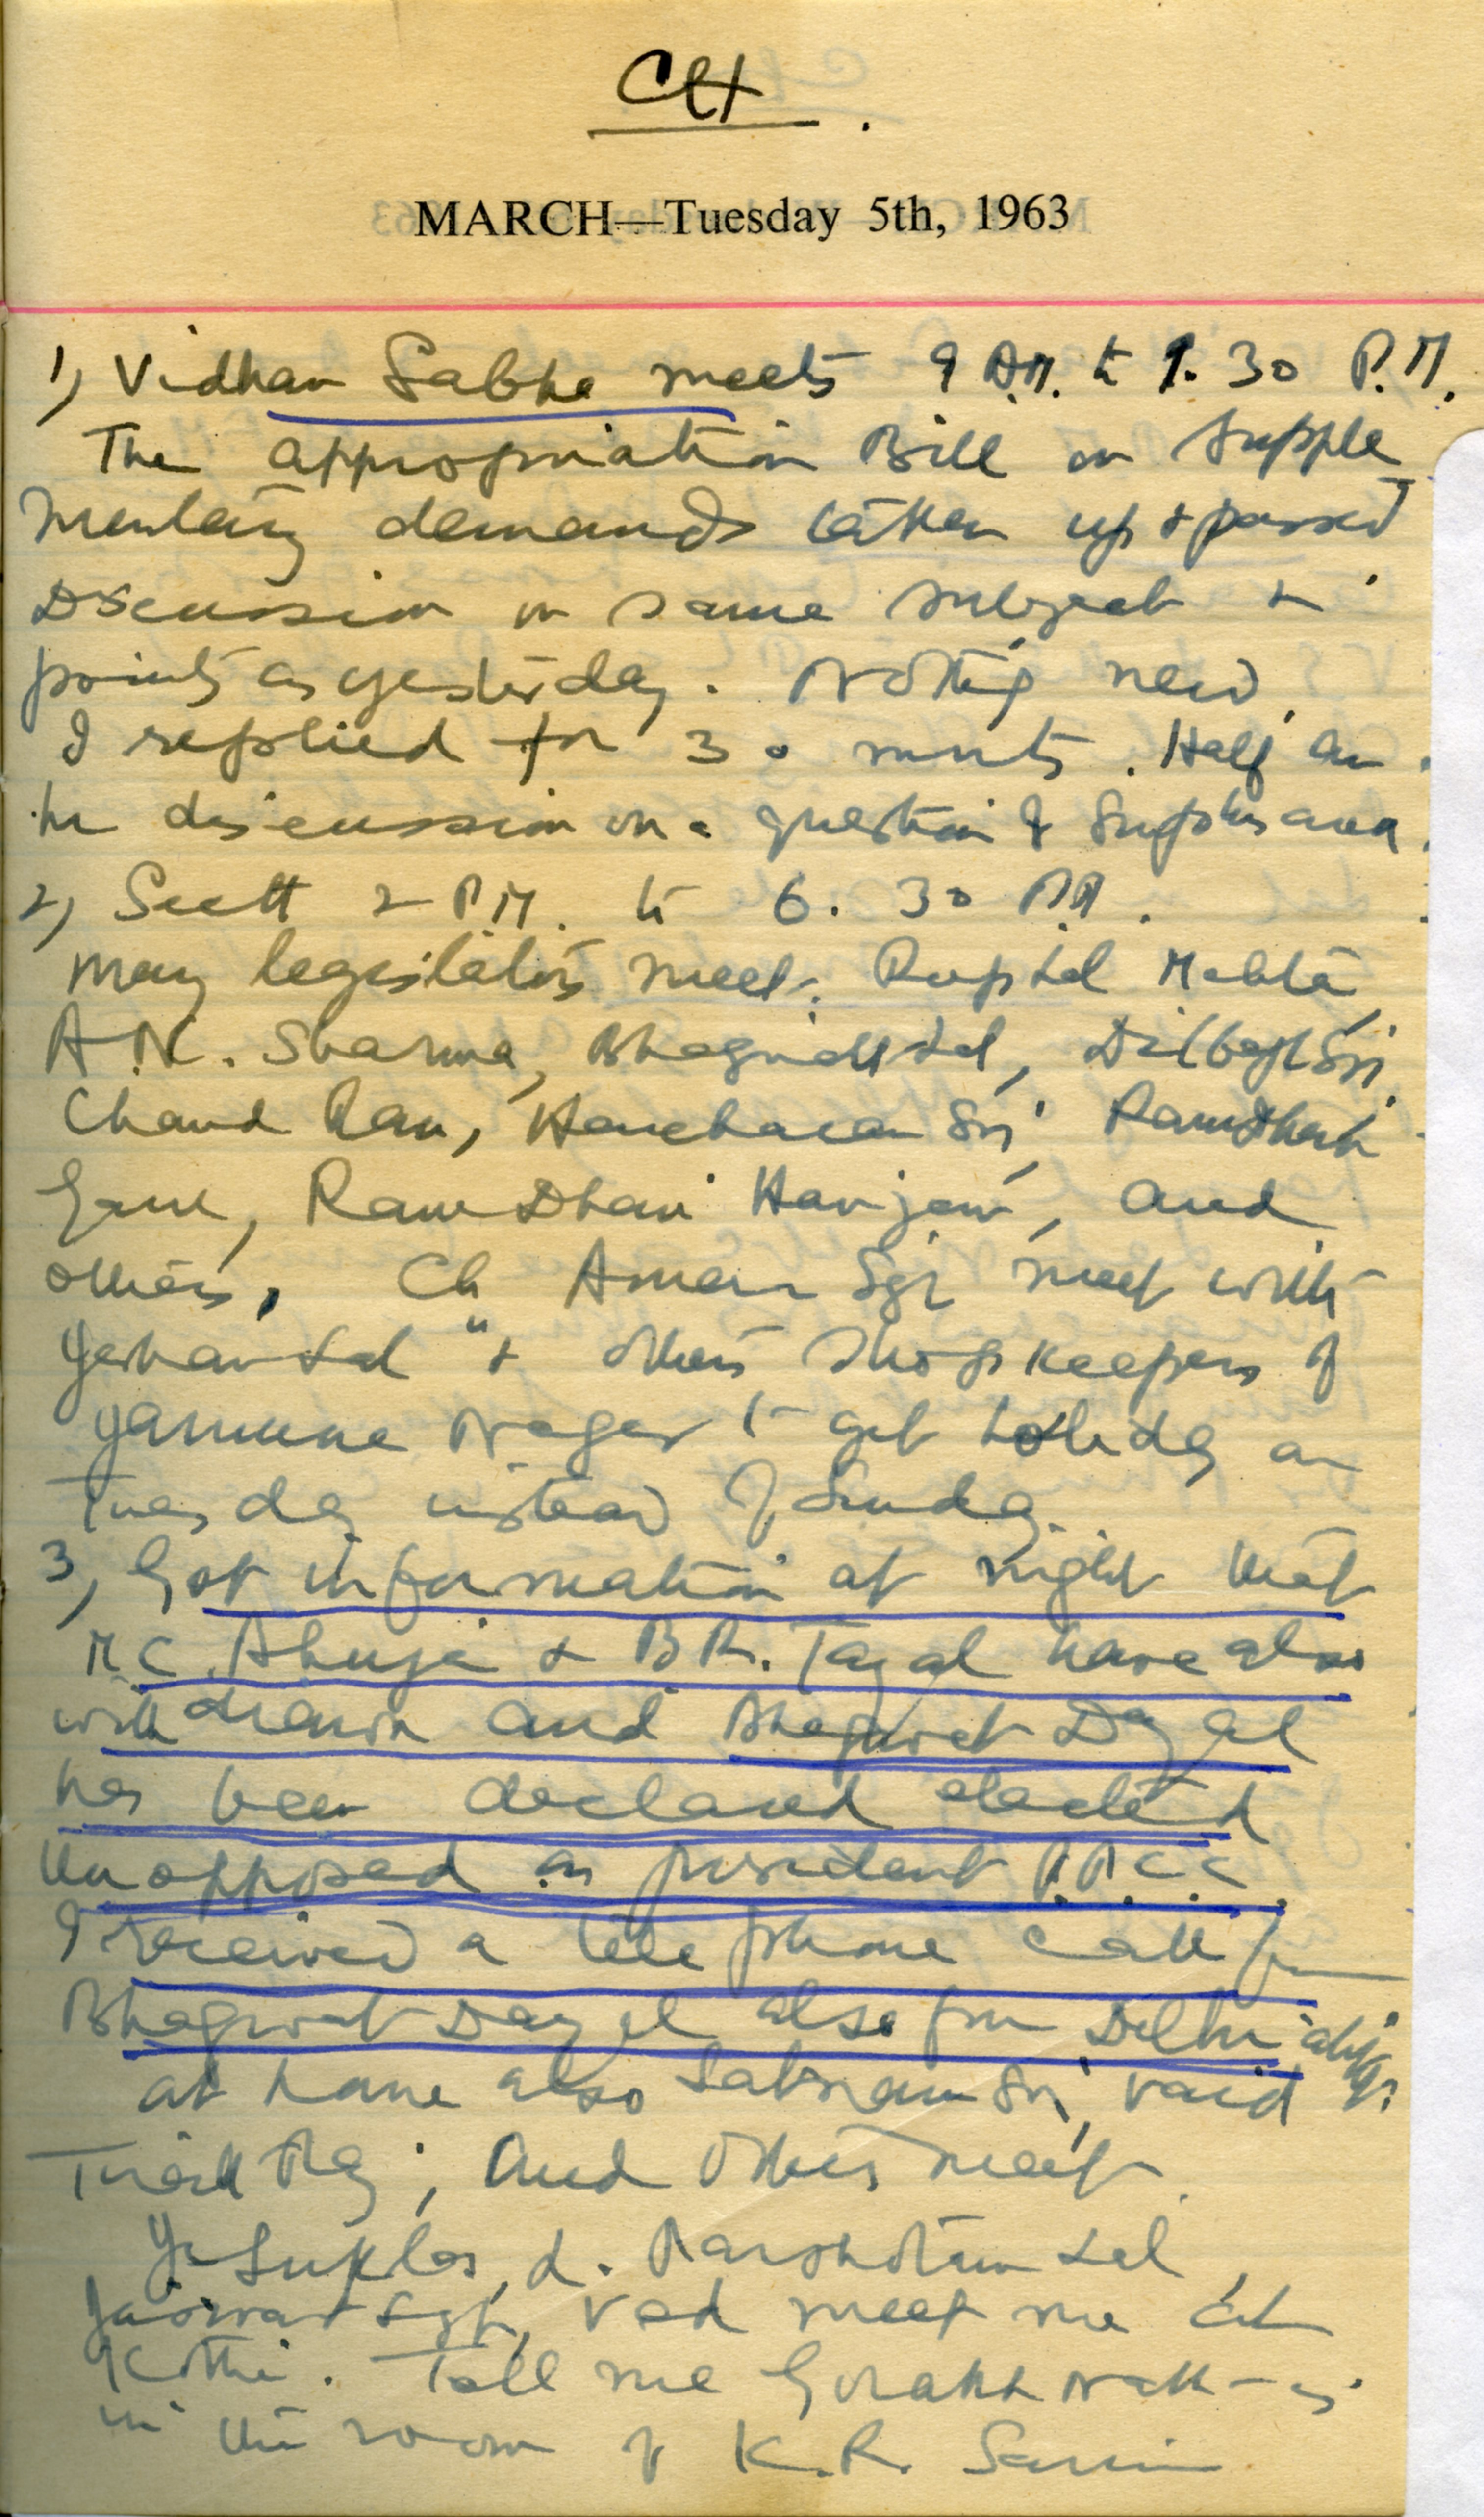 CH.
MARCH—Tuesday 5th, 1963
1) Vidhan Sabha meets 9 A.M. to 1.30 P.M.
The appropriation Bill on Supple
mentary demands taken up & passed
Discussion on same subject &
points as yesterday. Nothing new.
I replied for 30 minuts. Half an
hr discussion on a question of Surplus area.
2) Sectt 2 P.M. to 6.30 P.M.
Many legislators meet. Rup Lal Mehta,
A.N. Sharma, Bhagirath Lal, Dilbagh Sgr
Chand Ram, Harcharan Sgr, Ram Dhari
Gaur, Ram Dhari Harijan, and
others, Ch Amar Sgr meet with
Lal & others shopkeepers of
Yamuna Nagar to get holiday on
Tuesday instead of Sunday.
3) Got information at night that
M.C. Ahuja & B.R. Tayal have also
withdrawn and Bhagwat Dayal
has been declared elected
unopposed as president P.P.C.C.
I received a telephone call from
Bhagwat Dayal also from Delhi
at home also Satnam Sgr, Vaid
Tirath Raj, and others meet.
L. Parshotam Lal,
Jaswant Sgh, Ved meet me at
Kothi. Tell me Gorakh Nath is
in the room of K.R. Sarin